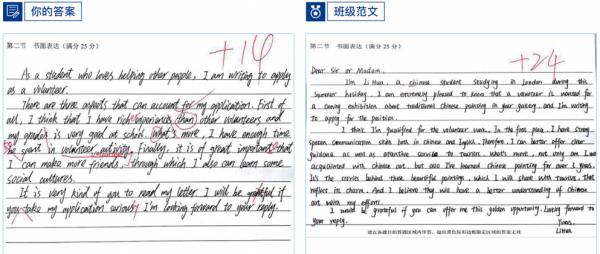 你的答案
第二节 书面表达(满分25分)
+14
As a student who loves helping other people, I am writing to apply
as a volunteer.
There are three aspects that can account for my application. First of
all, I think that I have rich experiences than other volunteers and
my grades is very good at school. What's more, I have enough time
to want in volunteer activity. Finally, it is of great important that
I can make more friends, through which I also can learn some
social cultures.
It is very kind of you to read my letter. I will be grateful if
you take my application seriously. I'm looking forward to your reply.
班级范文
第二节 书面表达(满分25分)
+24
Dear Sir or Madam,
I'm Li Hua, a chinese student studying in London during this
summer holiday. I am extremely pleased to know that a volunteer is wanted for
a coming exhibition about traditional Chinese painting in your gallery, and I'm writing
to apply for the position.
I think I'm qualified for the volunteer work. In the first place, I have strong
spoken communication skills both in chinese and English. Therefore, I can offer clear
guidance as well as attentive service to tourists. What's more, not only am I
acquainted with chinese art, but also I've learned chinese painting for over
It's the stories behind these beautiful paintings, which I will share with tourists, that
reflect its charm. And I believe they will have a better understanding of chinese
art with my efforts.
I would be grateful if you can offer me this golden opportunity. Looking forward to
your reply.
Yours,
Li Hua
请在各题目的答题区域内作答，超出黑色矩形边框限定区域的答案无效